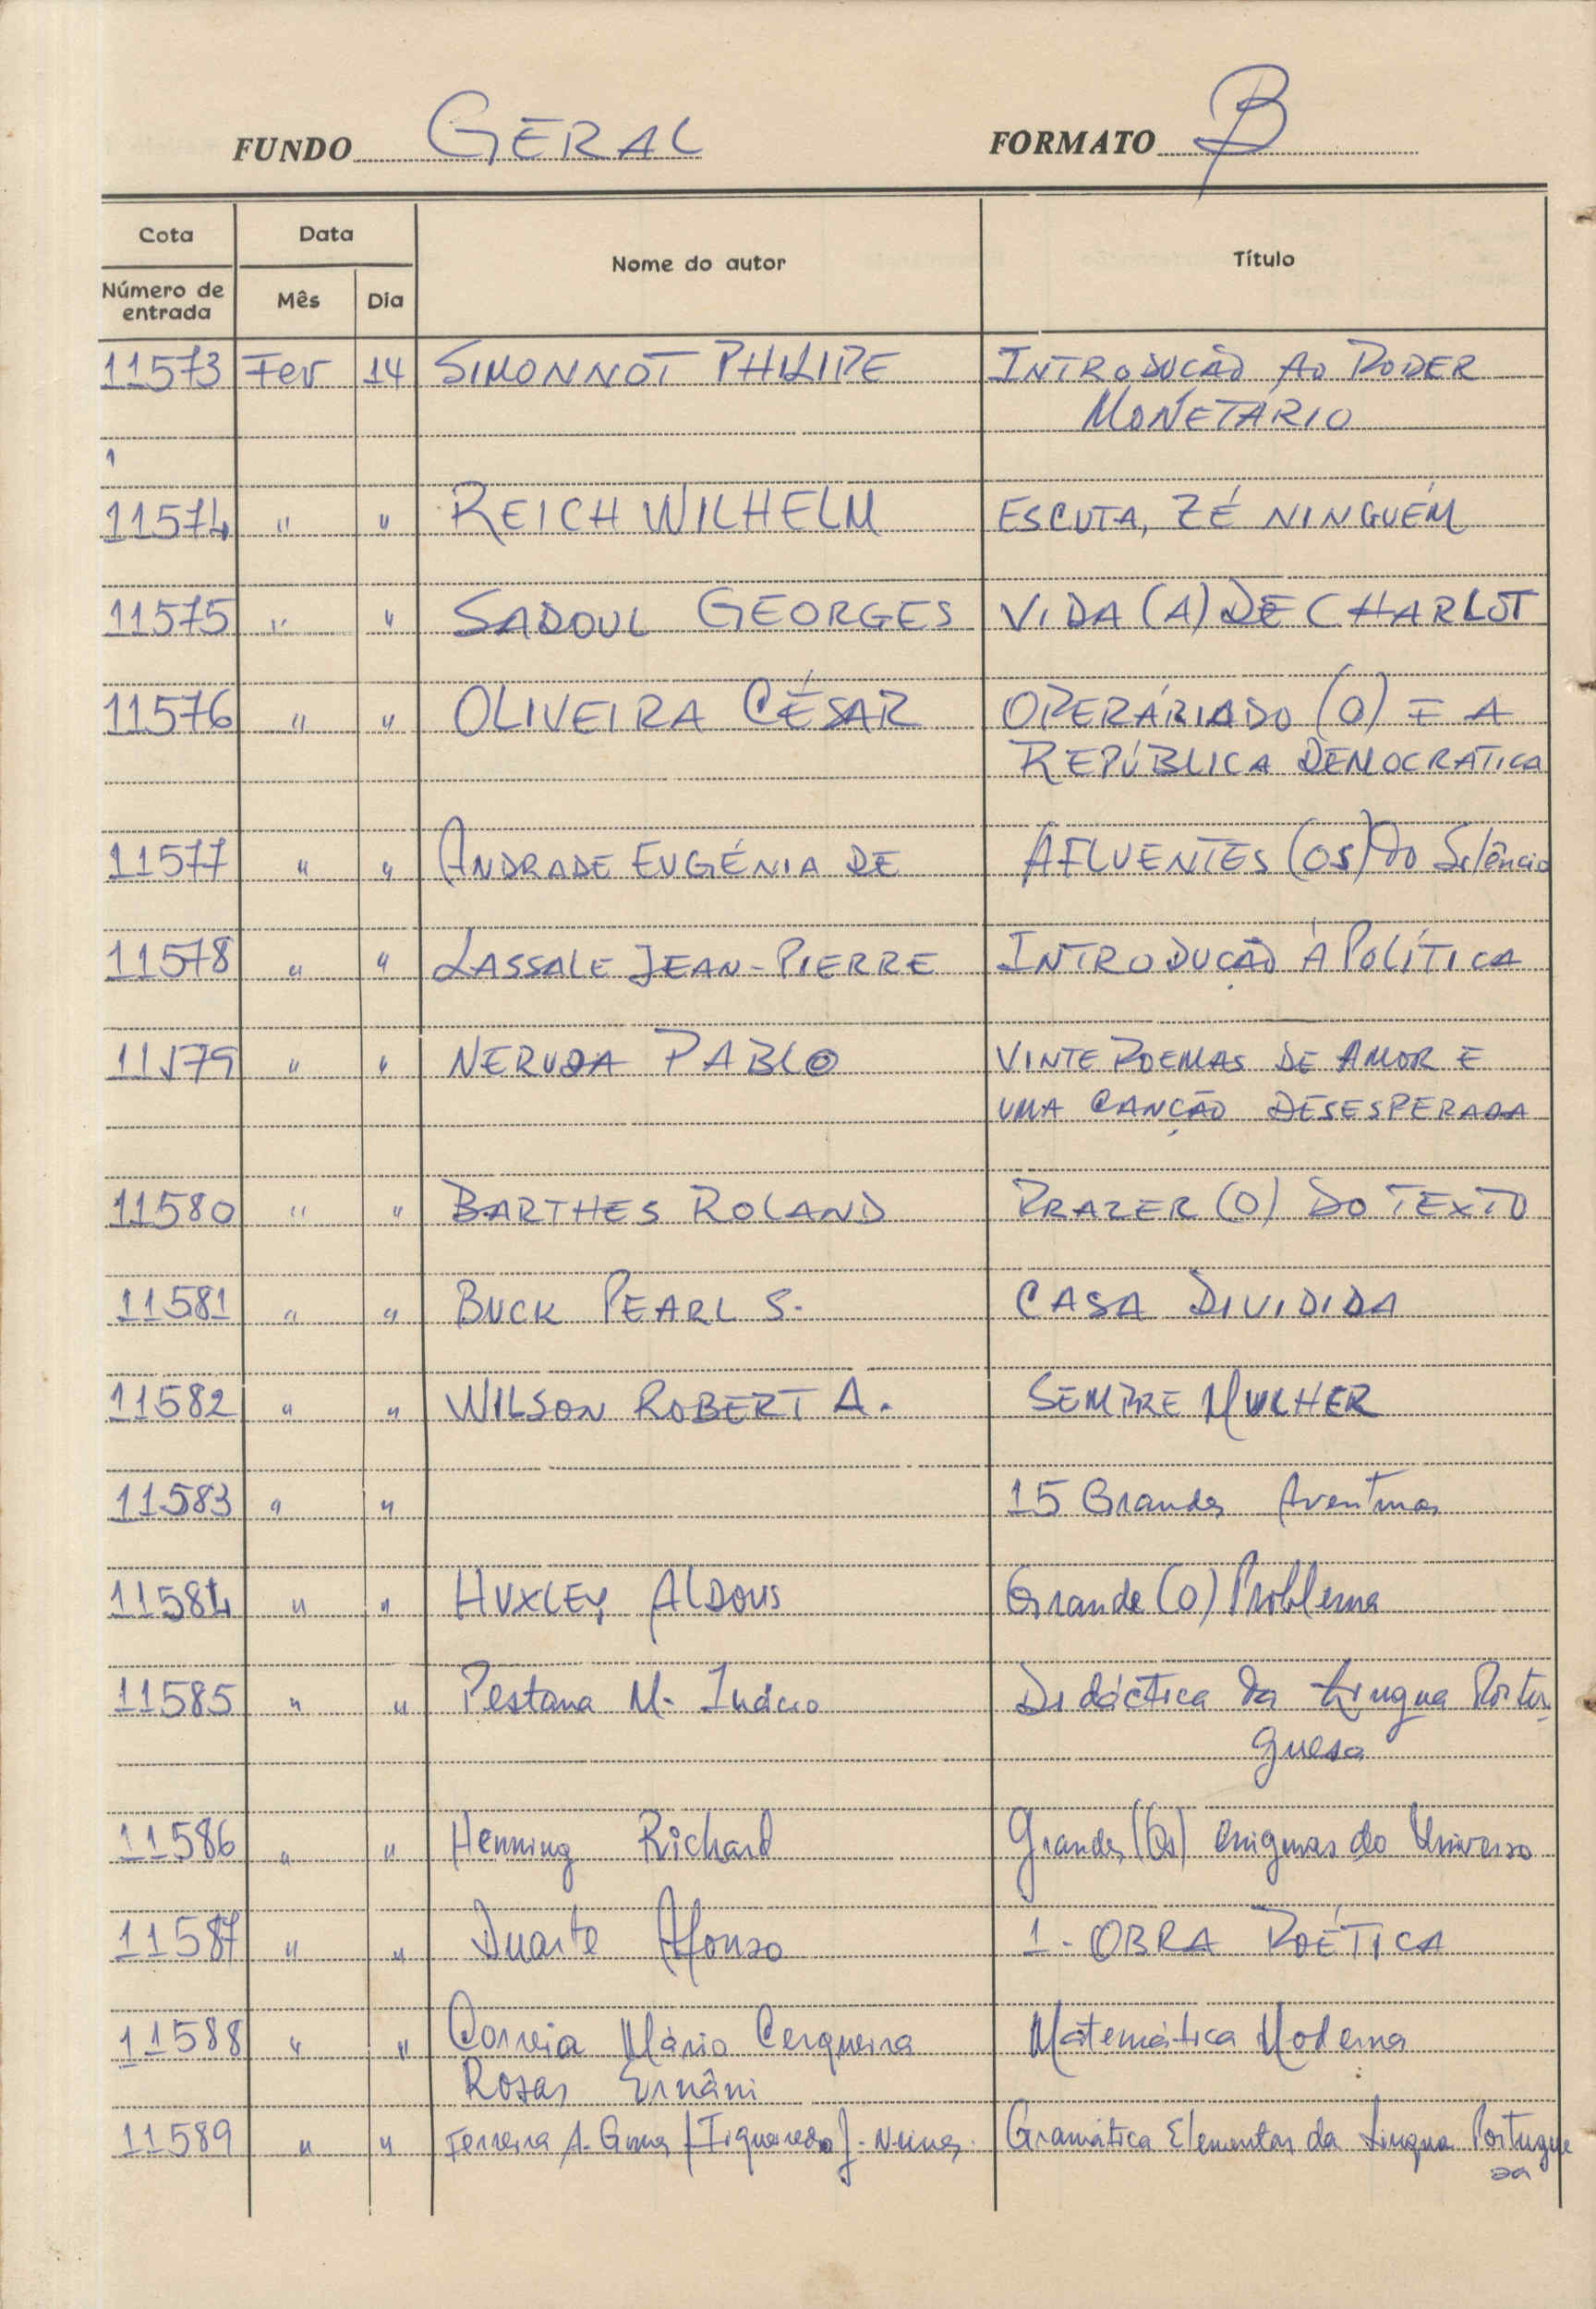 FUNDO GERAL FORMATO B
Cota Data Nome do autor Título
Número de entrada Mês Dia
11573 Fev 14 SIMONNOT PHILIPE INTRODUCÃO AO PODER
MONETÁRIO
11574 " " REICH WILHELM ESCUTA, ZÉ NINGUÉM
11575 " " SADOUL GEORGES VIDA (A) DE CHARLOT
11576 " " OLIVEIRA CÉSAR OPERÁRIADO (O) E A
REPÚBLICA DEMOCRATICA
11577 " " ANDRADE EUGÉNIA DE AFLUENTES (OS) DO Silêncio
11578 " " LASSALE JEAN-PIERRE INTRODUÇÃO À POLÍTICA
11579 " " NERUDA PABLO VINTE POEMAS DE AMOR E
UMA CANÇÃO DESESPERADA
11580 " " BARTHES ROLAND PRAZER (O) DO TEXTO
11581 " " BUCK PEARL S. CASA DIVIDIDA
11582 " " WILSON ROBERT A. SEMPRE MULHER
11583 " " 15 Grandes Aventuras
11584 " " HUXLEY ALDOUS Grande (O) Problema
11585 " " Pestana M. Inácio Didáctica da Língua Portu
guesa
11586 " " Henning Richard Grandes (Os) enigmas do Universo
11587 " " Duarte Afonso 1. OBRA POÉTICA
11588 " " Correia Mário Cerqueira Matemática Moderna
Rosas Ernâni
11589 " " Ferreira A. Gomes / Figueiredo J. Nunes Gramática Elementar da Língua Portugue
sa